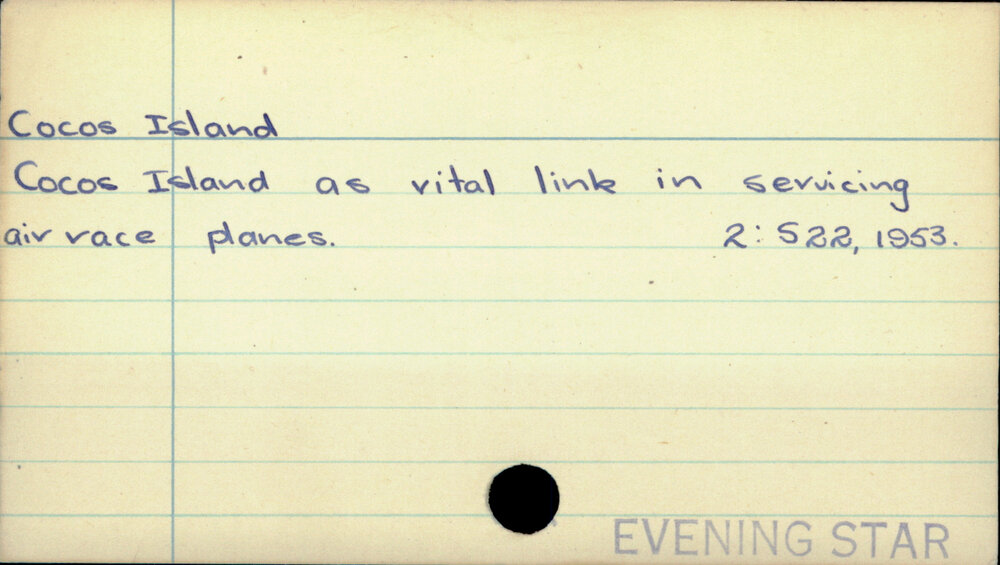 Cocos Island
Cocos Island as vital link in servicing
air race planes. 2: S22, 1953.
EVENING STAR